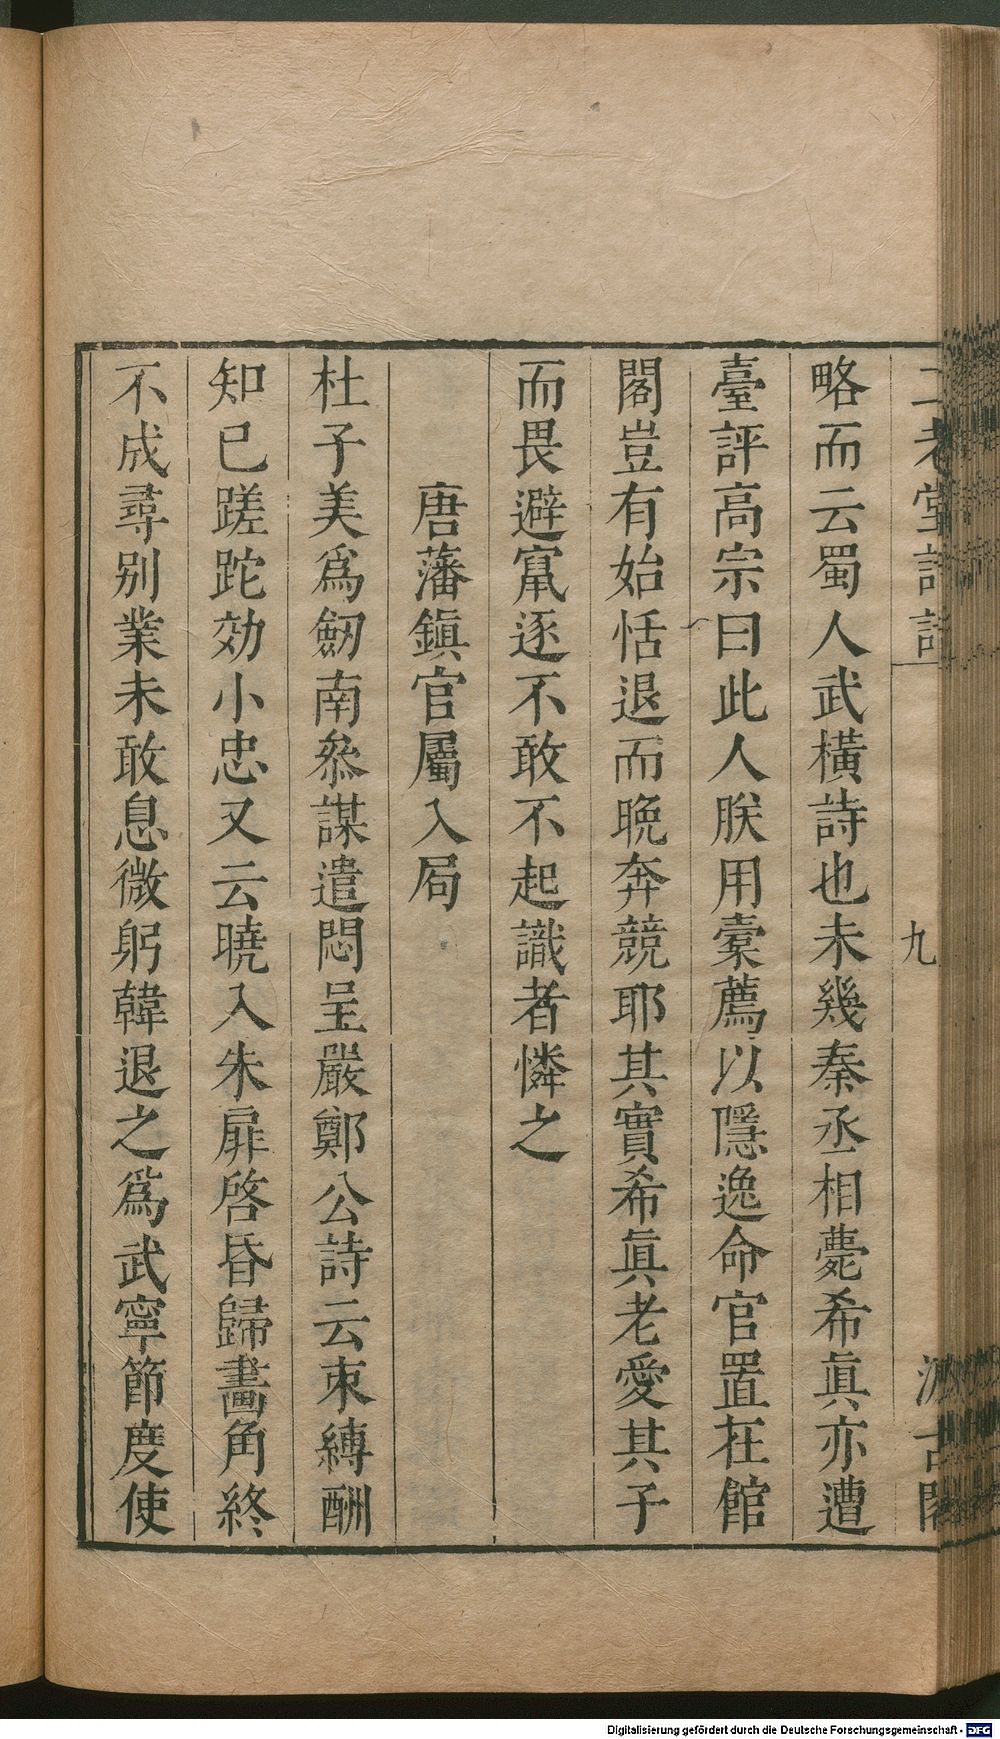 二老堂詩話
九
汲古閣
略而云蜀人武橫詩也未幾秦丞相薨希眞亦遭
臺評高宗曰此人朕用橐薦以隱逸命官置在館
閣豈有始恬退而晩奔競耶其實希眞老愛其子
而畏避竄逐不敢不起識者憐之
唐藩鎭官屬入局
杜子美爲劒南叅謀遣悶呈嚴鄭公詩云束縛酬
知已蹉跎効小忠又云曉入朱扉啓昏歸畵角終
不成尋别業未敢息微躬韓退之爲武寧節度使
Digitalisierung gefördert durch die Deutsche Forschungsgemeinschaft - DFG